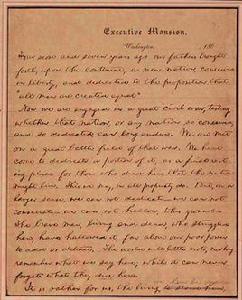 Executive Mansion,
Washington, 186
Four score and seven years ago our fathers brought
forth, upon this continent, a new nation, conceived
in liberty, and dedicated to the proposition that
"all men are created equal"
Now we are engaged in a great civil war, testing
whether that nation, or any nation so conceived,
and so dedicated, can long endure. We are met
on a great battle field of that war. We have
come to dedicate a portion of it, as a final rest-
ing place for those who died here, that the nation
might live. This we may, in all propriety do. But, in a
larger sense, we can not dedicate we can not
consecrate we can not hallow, this ground
The brave men, living and dead, who struggled
here, have hallowed it, far above our poor power
to add or detract. The world will little note, nor long
remember what we say here; while it can never
forget what they did here.
It is rather for us, the living, to stand here,